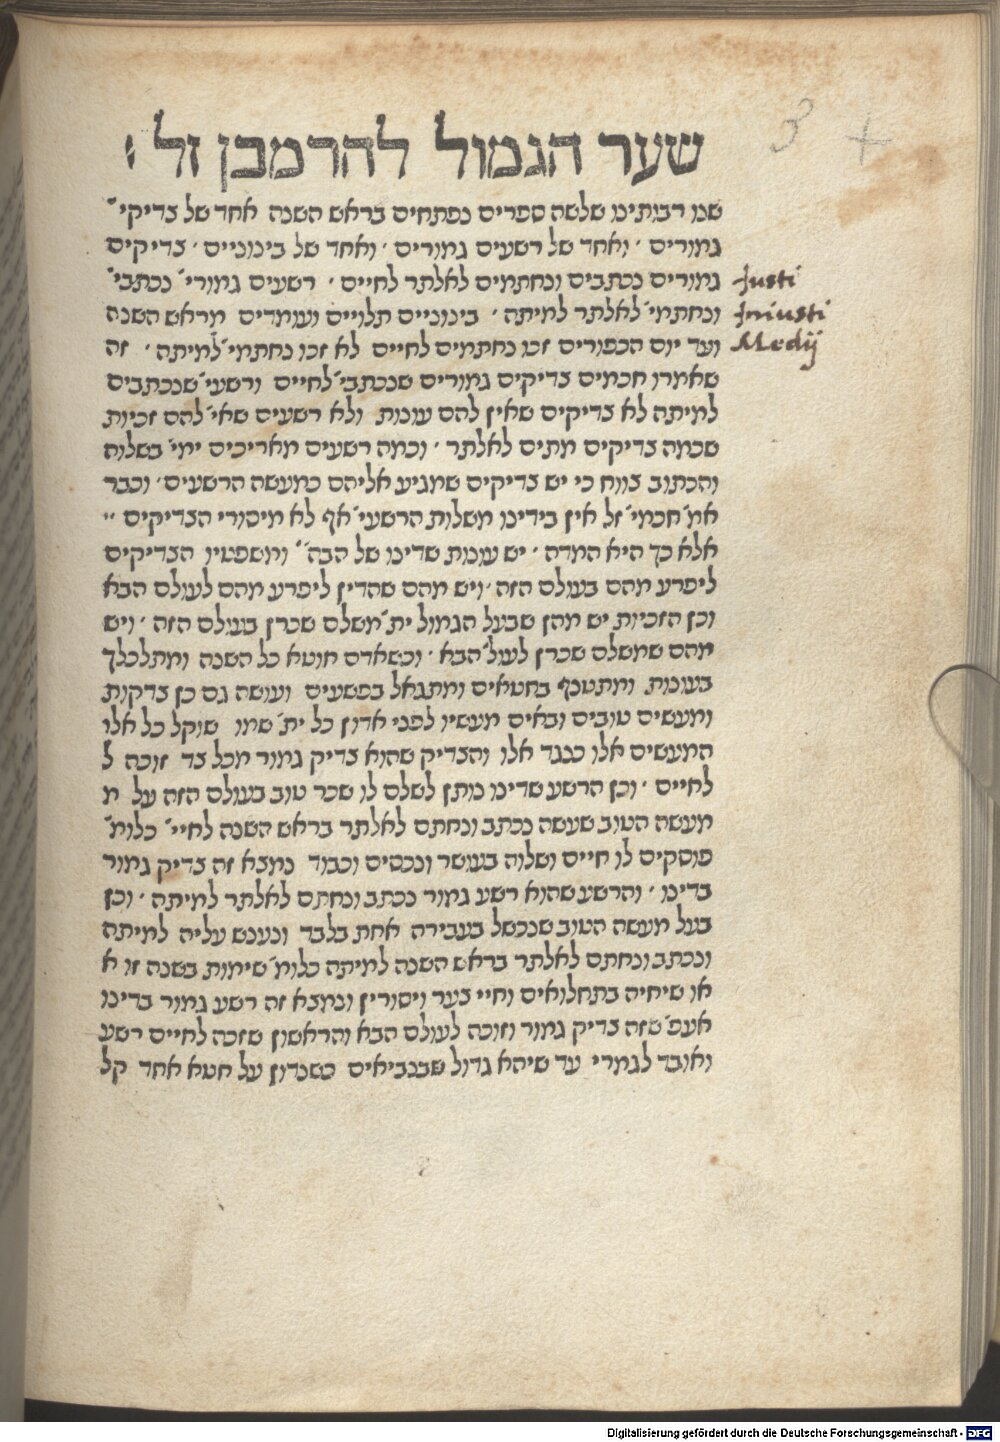 3 +
שער הגמול להרמבן זל
שנו רבותינו שלשה ספרים נפתחים בראש השנה אחד של צדיקי׳
גמורים ׳ ואחד של רשעים גמורים ׳ ואחד של בינוניים ׳ צדיקים
גמורים נכתבים ונחתמים לאלתר לחיים ׳ רשעים גמורי׳ נכתבי׳
Justi
ונחתמי׳ לאלתר למיתה ׳ בינוניים תלויים ועומדים מראש השנה
Iniusti
ועד יום הכפורים זכו נחתמים לחיים לא זכו נחתמי׳ למיתה ׳ זה
Medij
שאמרו חכמים צדיקים גמורים שנכתבי׳ לחיים ורשעי׳ שנכתבים
למיתה לא צדיקים שאין להם עונות ולא רשעים שאי׳ להם זכיות
שכמה צדיקים מתים לאלתר ׳ וכמה רשעים מאריכים ימי׳ בשלוה
והכתוב צווח כי יש צדיקים שמגיע אליהם כמעשה הרשעים ׳ וכבר
אמ׳ חכמי׳ זל אין בידינו משלות הרשעי׳ אף לא מיסורי הצדיקים ׳׳
אלא כך היא המדה ׳ יש עונות שדינו של הבה׳׳ ומשפטיו הצדיקים
ליפרע מהם בעולם הזה ׳ ויש מהם שהדין ליפרע מהם לעולם הבא
וכן הזכיות יש מהן שבעל הגמול ית׳ משלם שכרן בעולם הזה ׳ ויש
מהם שמשלם שכרן לעול׳ הבא ׳ וכשאדם חוטא כל השנה ומתלכלך
בעונות ומתטנף בחטאים ומתגאל בפשעים ועושה גם כן צדקות
ומעשים טובים ובאים מעשיו לפני אדון כל ית׳ שמו שוקל כל אלו
המעשים אלו כנגד אלו והצדיק שהוא צדיק גמור מכל צד זוכה ל
לחיים ׳ וכן הרשע שדינו נותן לשלם לו שכר טוב בעולם הזה על מ
מעשה הטוב שעשה נכתב ונחתם לאלתר בראש השנה לחיי׳ כלומ׳
פוסקים לו חיים ושלוה בעושר ונכסים וכבוד נמצא זה צדיק גמור
בדינו ׳ והרשע שהוא רשע גמור נכתב ונחתם לאלתר למיתה ׳ וכן
בעל מעשה הטוב שנכשל בעבירה אחת בלבד ונענש עליה למיתה
ונכתב ונחתם לאלתר בראש השנה למיתה כלומ׳ שימות בשנה זו א
או שיחיה בתחלואים וחיי צער ויסורין ונמצא זה רשע גמור בדינו
אעפ׳ שזה צדיק גמור וזוכה לעולם הבא והראשון שזכה לחיים רשע
ואובד לגמרי עד שיהא גדול שבנביאים כשנדון על חטא אחד קל
Digitalisierung gefördert durch die Deutsche Forschungsgemeinschaft - DFG